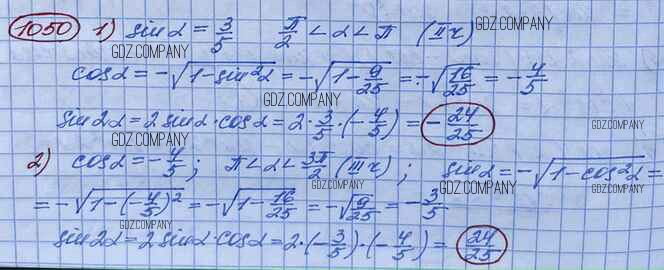 1050 1) sin α = 3/5 π/2 < α < π (II ч) GDZ.COMPANY
GDZ.COMPANY
cos α = -√(1 - sin²α) = -√(1 - 9/25) = -√(16/25) = -4/5
GDZ.COMPANY
sin 2α = 2 sin α · cos α = 2 · 3/5 · (-4/5) = -24/25 GDZ.COMPANY
GDZ.COMPANY
2) cos α = -4/5; π < α < 3π/2 (III ч); sin α = -√(1 - cos²α) =
GDZ.COMPANY GDZ.COMPANY
= -√(1 - (-4/5)²) = -√(1 - 16/25) = -√(9/25) = -3/5
GDZ.COMPANY
sin 2α = 2 sin α · cos α = 2 · (-3/5) · (-4/5) = 24/25
GDZ.COMPANY GDZ.COMPANY